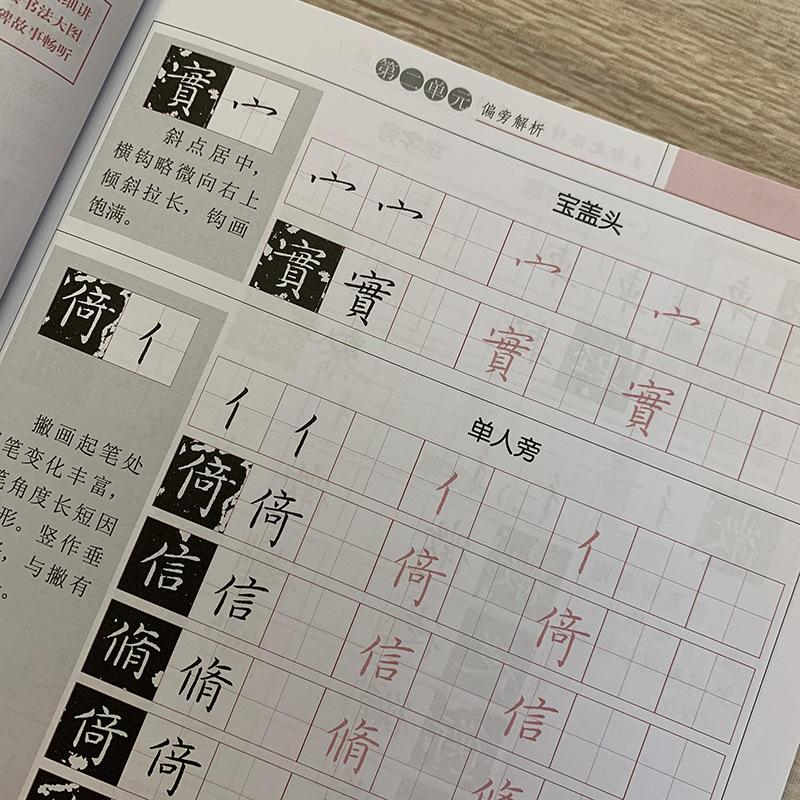 细讲
书法大图
碑故事畅听
第二单元 偏旁解析
實 宀
斜点居中,
横钩略微向右上
倾斜拉长,钩画
饱满。
宝盖头
宀 宀 宀 宀
實 實 實 實
倚 亻
撇画起笔处
笔变化丰富,
笔角度长短因
形。竖作垂
,与撇有
。
单人旁
亻 亻 亻 亻
倚 倚 倚 倚
信 信 信 信
脩 脩 脩 脩
倚 倚